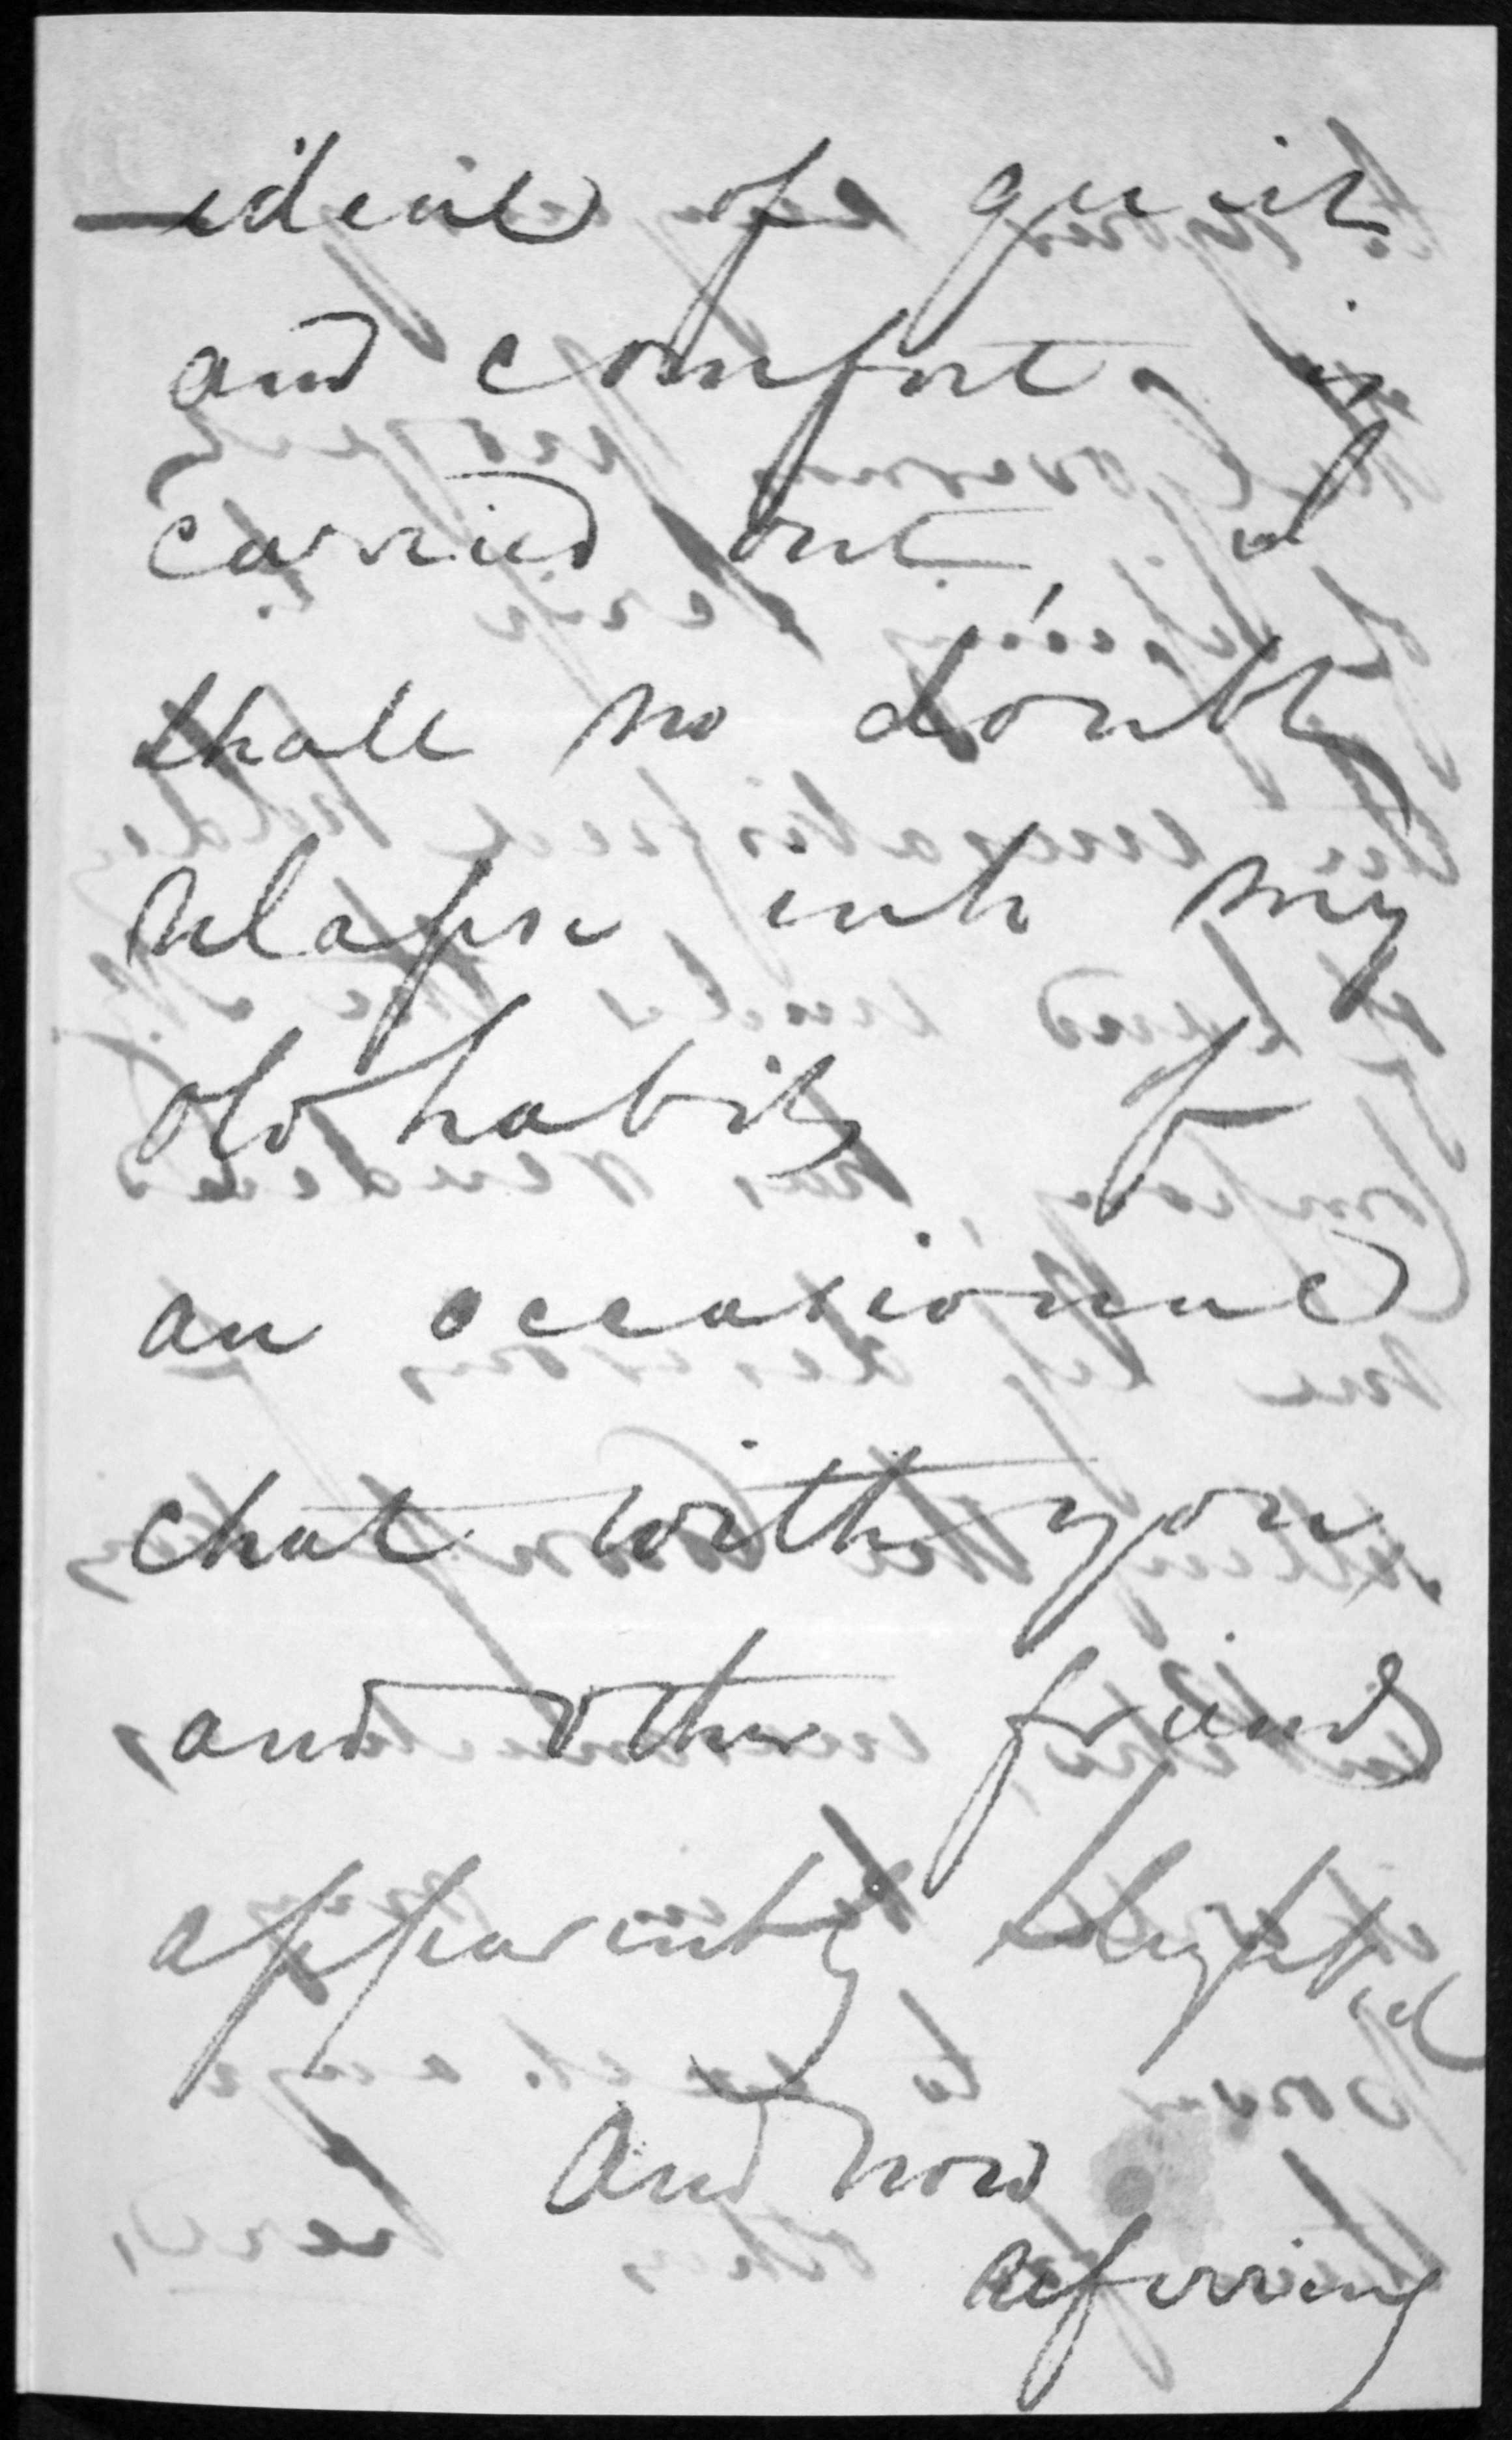 ideal of quiet
and comfort is
carried out, I
shall no doubt
relapse into my
old habits of
an occasional
chat with you
and other friends
apparently slighted
And now
referring